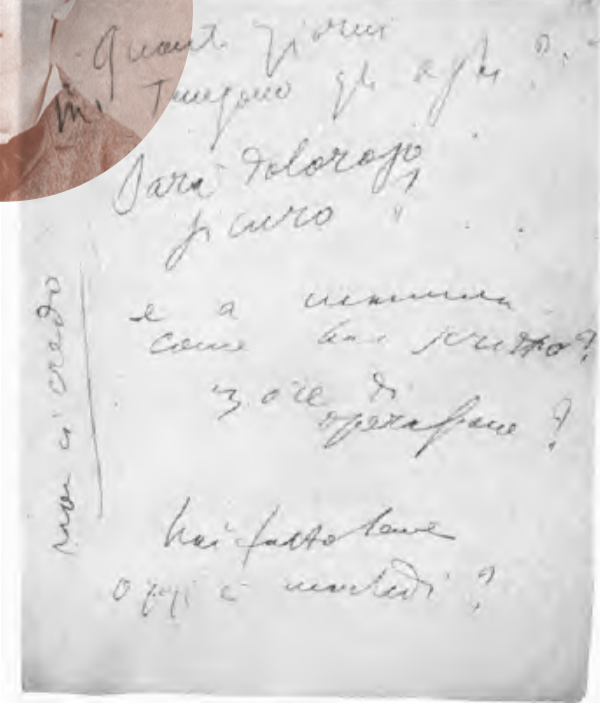 Quanti giorni
mi tengono gli aghi?
Sarà doloroso
sicuro
e a
come hai scritto?
3 ore di
operazione?
hai fatto bene
oggi è martedì?
non ci credo